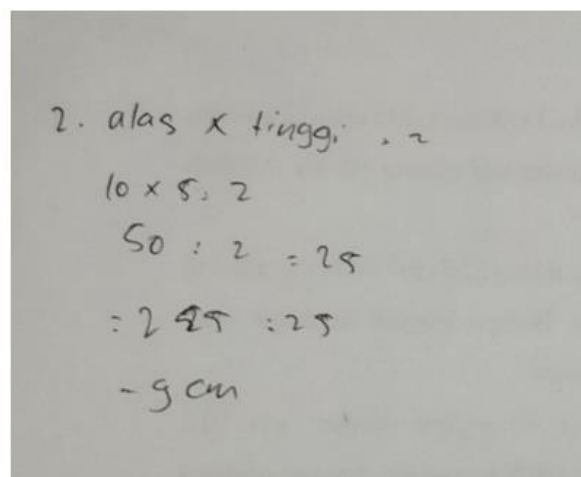 2. alas x tinggi : 2
10 x 5 : 2
50 : 2 = 25
= 225 : 25
= 9 cm